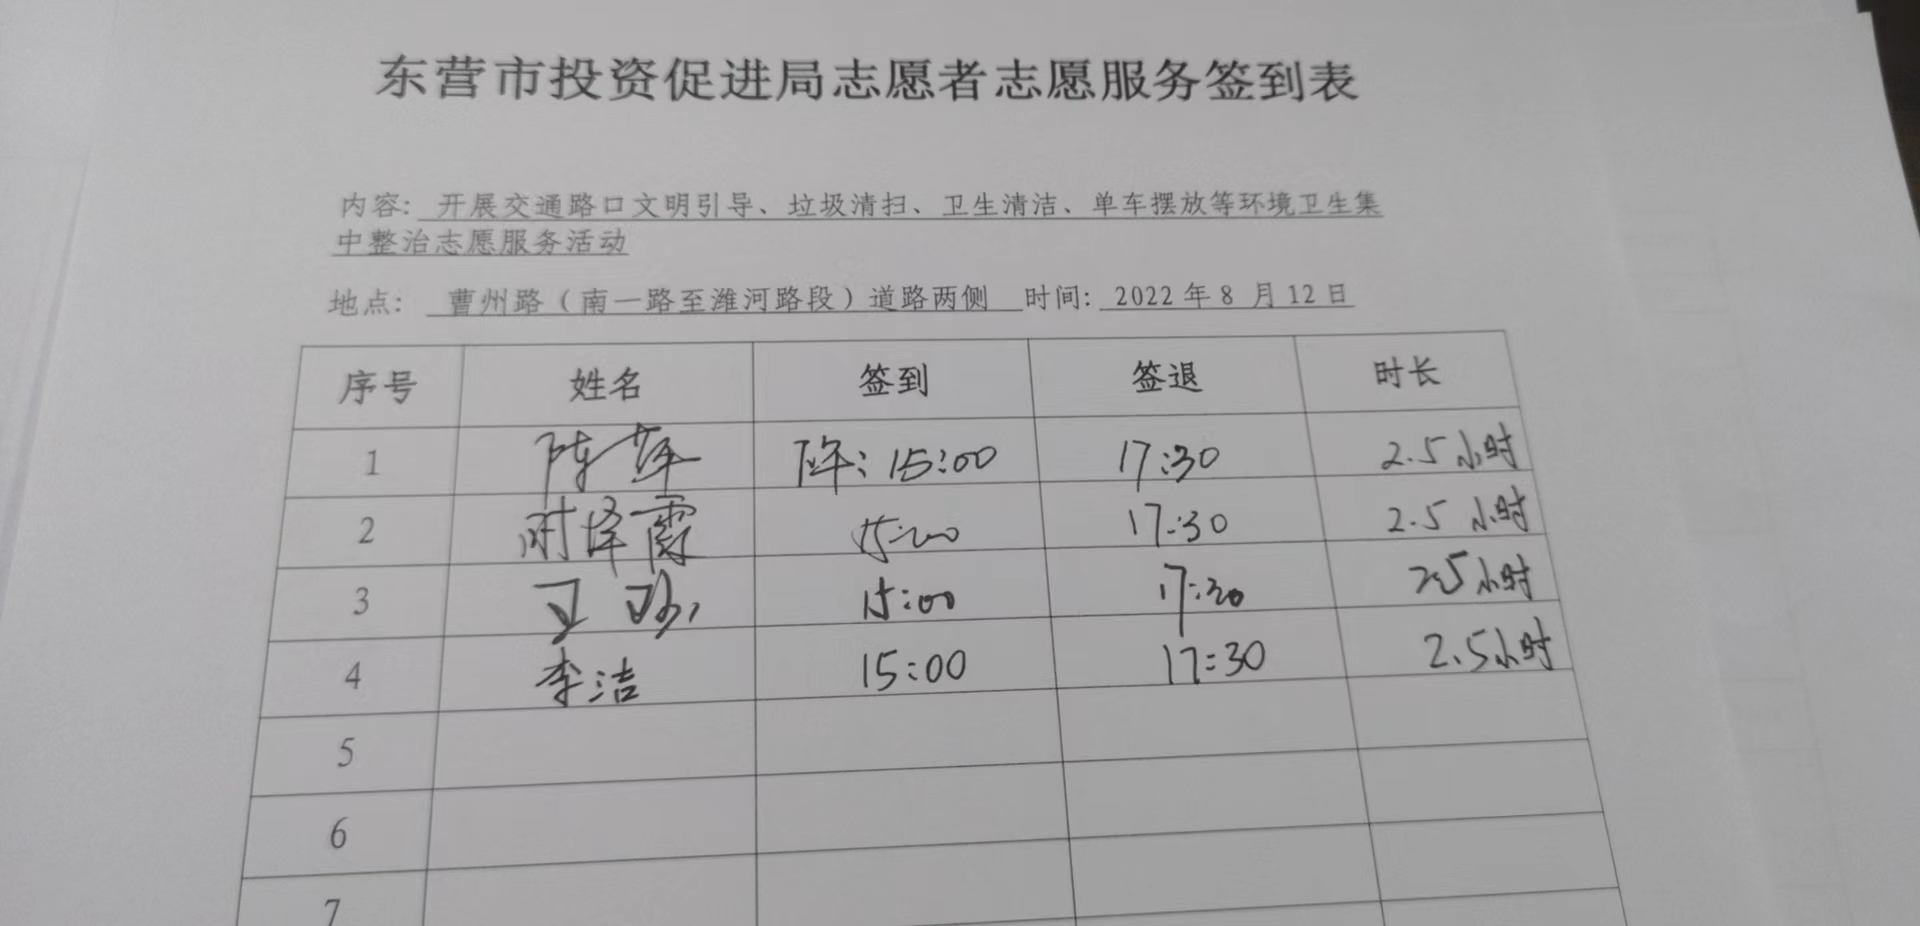 东营市投资促进局志愿者志愿服务签到表
内容: 开展交通路口文明引导、垃圾清扫、卫生清洁、单车摆放等环境卫生集
中整治志愿服务活动
地点: 曹州路（南一路至潍河路段）道路两侧 时间: 2022年8月12日
序号 姓名 签到 签退 时长
1 陈萍 下午:15:00 17:30 2.5小时
2 15:00 17:30 2.5小时
3 王 15:00 17:30 2.5小时
4 李洁 15:00 17:30 2.5小时
5
6
7